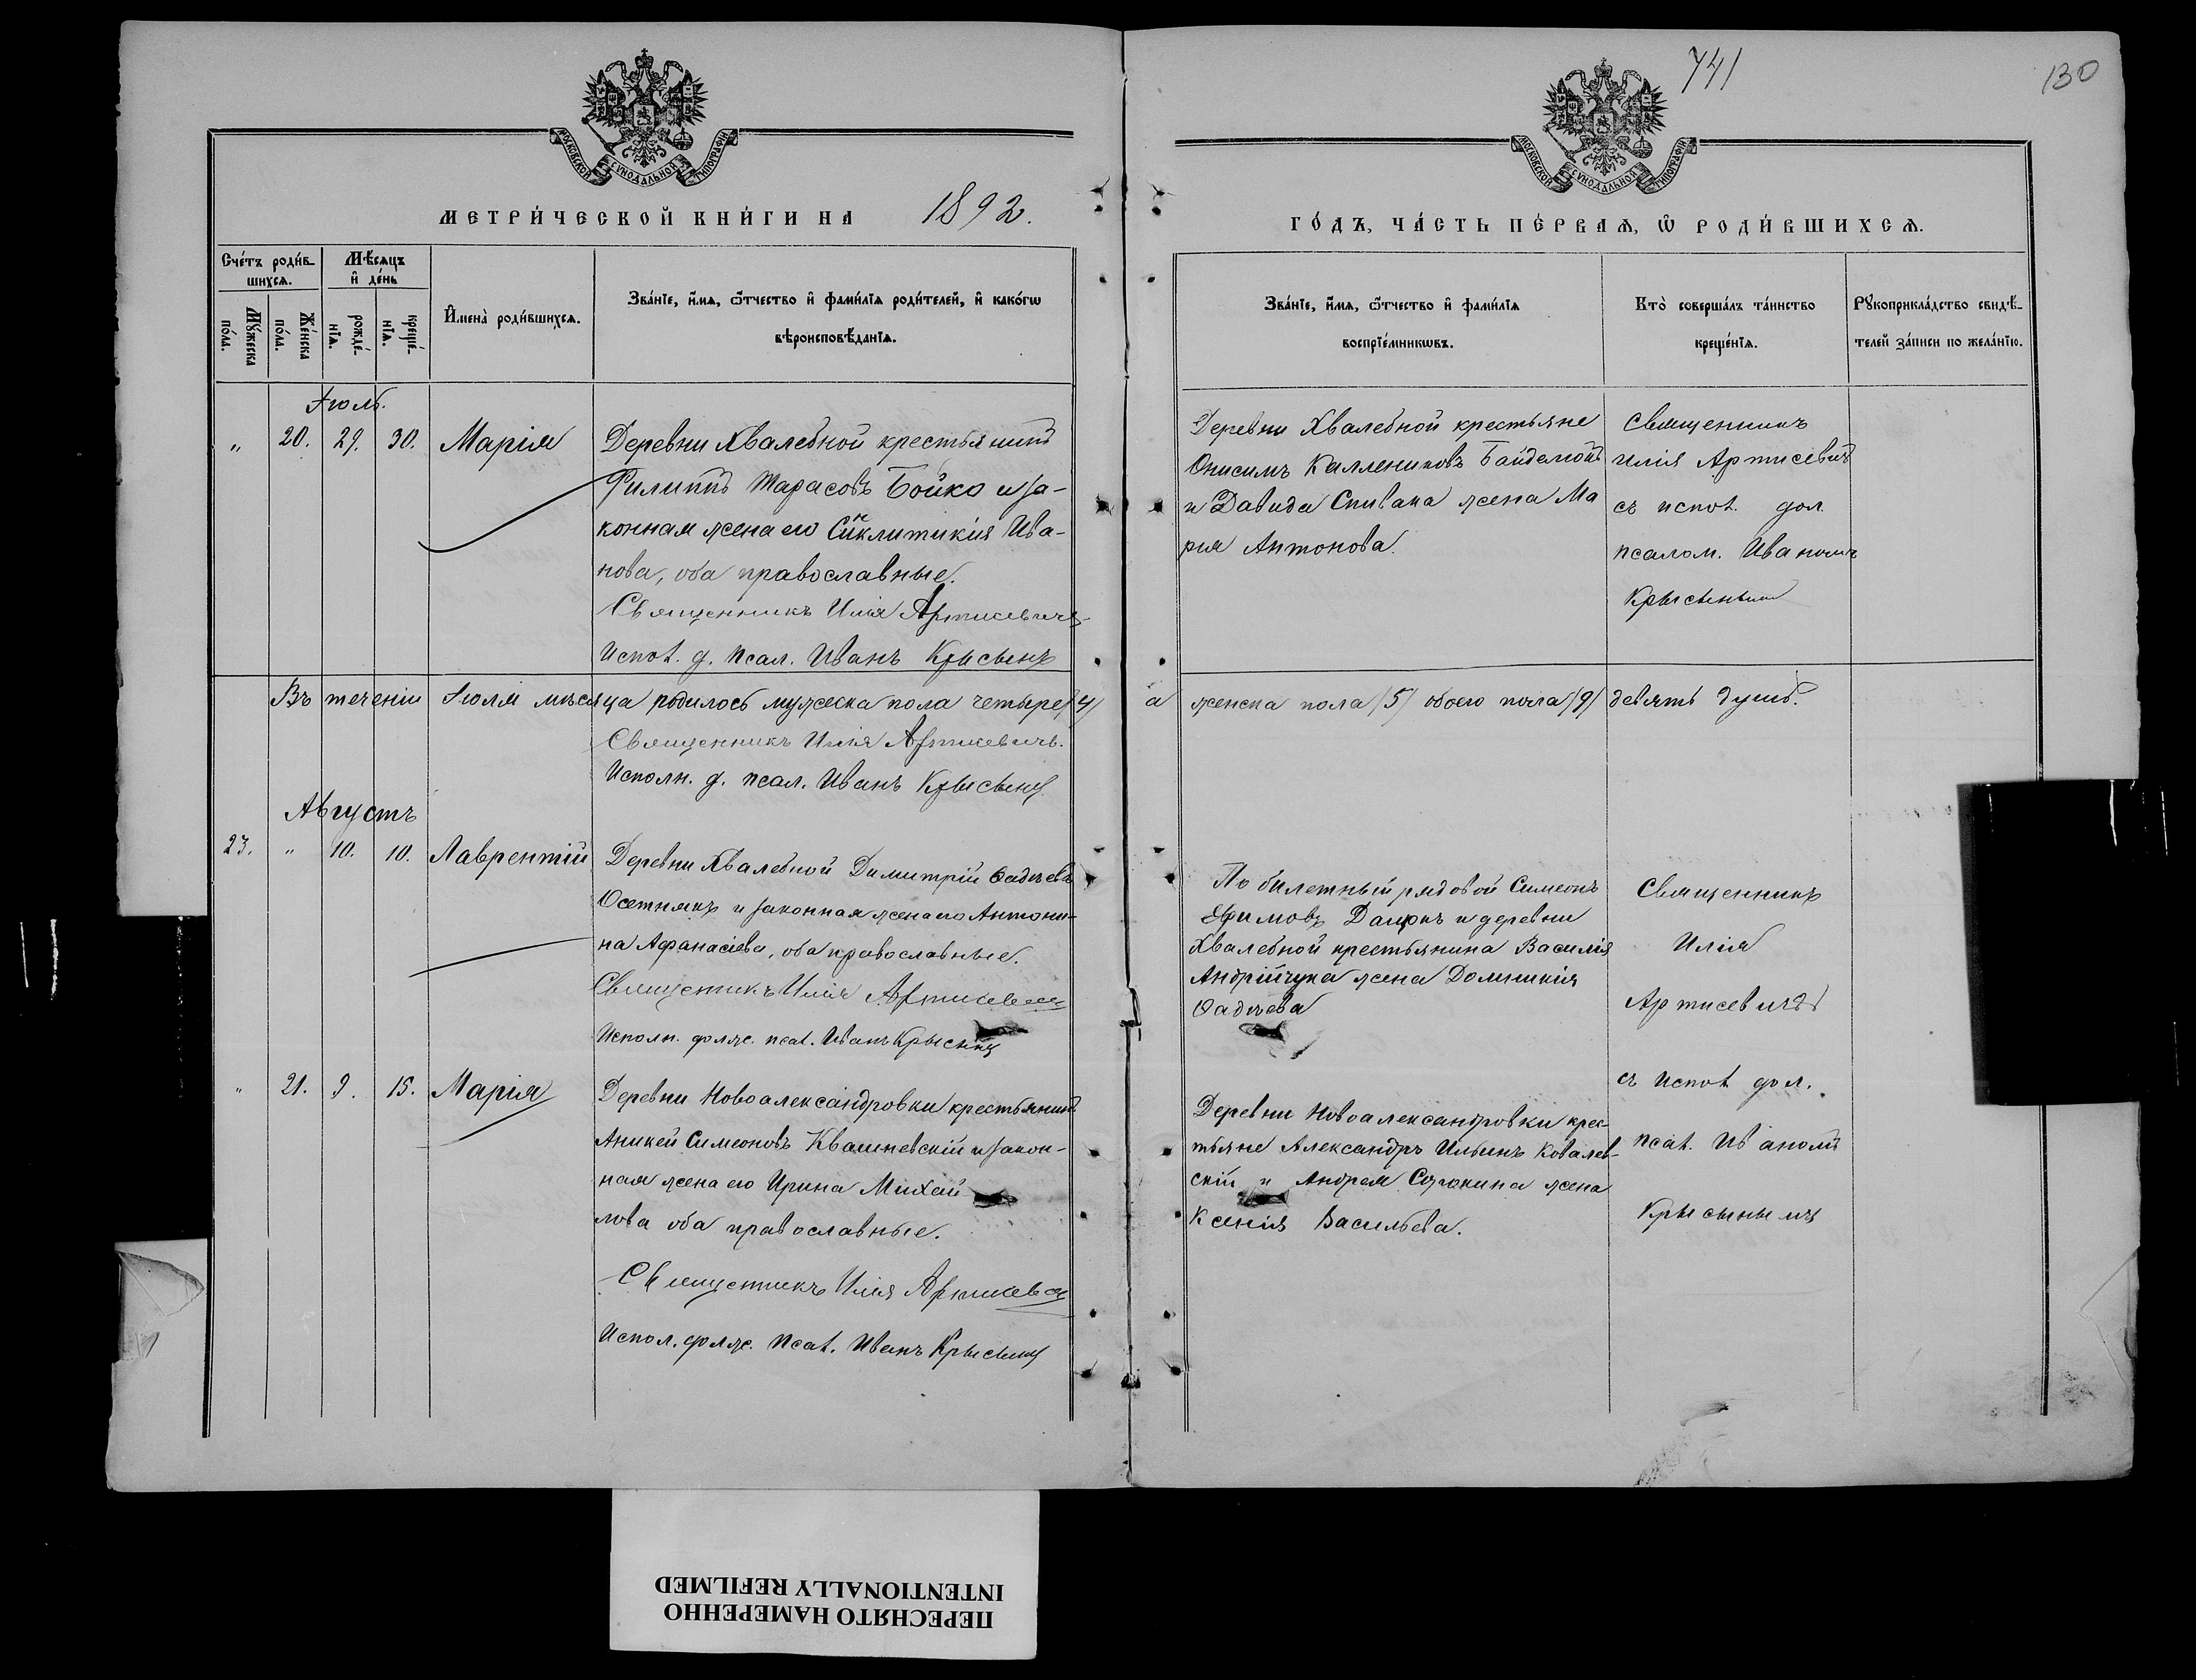 741
130
МОСКОВСКОЙ СУНОДАЛЬНОЙ ТИПОГРАФІИ
МОСКОВСКОЙ СУНОДАЛЬНОЙ ТИПОГРАФІИ
МЕТРИ́ЧЕСКОЙ КНИ́ГИ НА 1892.
ГО́ДЪ, ЧА́СТЬ ПЕ́РВАѦ, Ѡ҆ РОДИ́ВШИХСѦ.
Сче́тъ роди́в-
шихсѧ.
Мꙋ́жеска
по́ла.
Же́нска
по́ла.
Мѣ́сѧцъ
и҆ де́нь
рожде́-
нїѧ.
креще́-
нїѧ.
И҆мена̀ роди́вшихсѧ.
Зва́нїе, и҆́мѧ, ѻ҆́тчество и҆ фами́лїѧ роди́телей, и҆ како́гѡ
вѣроисповѣ́данїѧ.
Зва́нїе, и҆́мѧ, ѻ҆́тчество и҆ фами́лїѧ
воспрїе́мникѡвъ.
Кто̀ соверша́лъ та́инство
креще́нїѧ.
Рꙋкоприкла́дство свидѣ́-
телей за́писи по жела́нїю.
Іюль.
„ 20. 29. 30. Марія
Деревни Хвалебной крестьянинъ
Филиппъ Тарасовъ Бойко и за-
конная жена его Синклитикія Ива-
нова, оба православные.
Священникъ Илія Артисевичъ
Испол. д. псал. Иванъ Крысинъ
Деревни Хвалебной крестьяне
Онисимъ Каллениковъ
и Давида Спивака жена Ма
рія Антонова.
Священникъ
Илія Артисевичъ
съ испол. дол.
псалом. Иваномъ
Крысинымъ
Въ теченіи Іюля мѣсяца родилось мужеска пола четыре /4/
а женска пола /5/ обоего пола /9/ девять душъ.
Священникъ Илія Артисевичъ.
Исполн. д. псал. Иванъ Крысинъ
Августъ
23. „ 10. 10. Лаврентій
Деревни Хвалебной Димитрій Фадѣевъ
Осетнякъ и законная жена его Антони-
на Афанасіева, оба православные.
Священникъ Илія Артисевичъ
Исполн. долж. псал. Иванъ Крысинъ
По билетный рядовой Симеонъ
Ефимовъ и деревни
Хвалебной крестьянина Василія
Андрійчука жена Домникія
Фадѣева
Священникъ
Илія
Артисевичъ
съ испол. дол.
псал. Иваномъ
Крысинымъ
„ 21. 9. 15. Марія
Деревни Новоалександровки крестьянинъ
Аникей Симеоновъ Квашневскій и закон-
ная жена его Ирина Михай
лова оба православные.
Священникъ Илія Артисевичъ
Испол. долж. псал. Иванъ Крысинъ
Деревни Новоалександровки крес-
тьяне Александръ Ильинъ Ковалев-
скій и Андрея жена
Ксенія Васильева.
ПЕРЕСНЯТО НАМЕРЕННО
INTENTIONALLY REFILMED